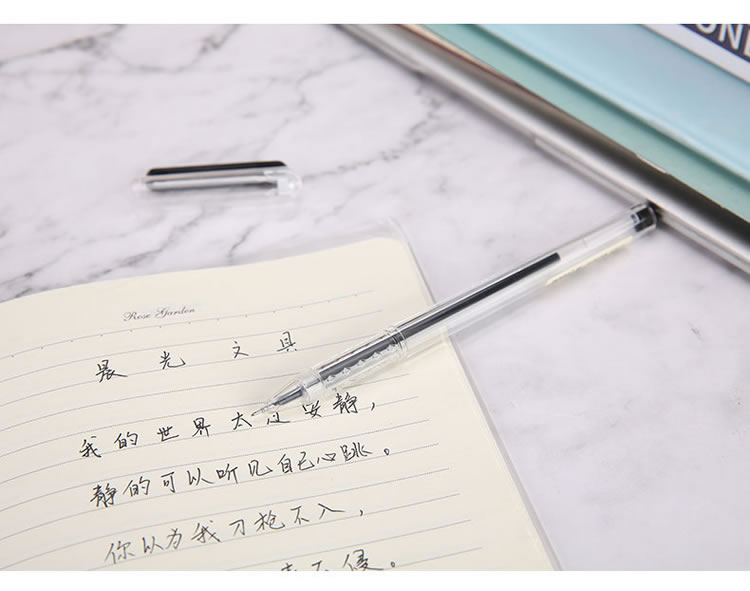 Rose Garden
晨光文具
我的世界太过安静，
静的可以听见自己心跳。
你以为我刀枪不入，
不侵。